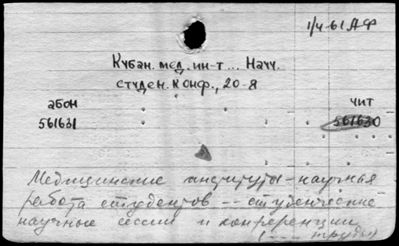 1/4-61 АФ
Кубан. мед. ин-т... Науч.
студен. конф., 20-я
абон чит
561631 561630
Медицинские институты - научная
работа студентов -- студенческие
научные сессии и конференции
(--- труды)